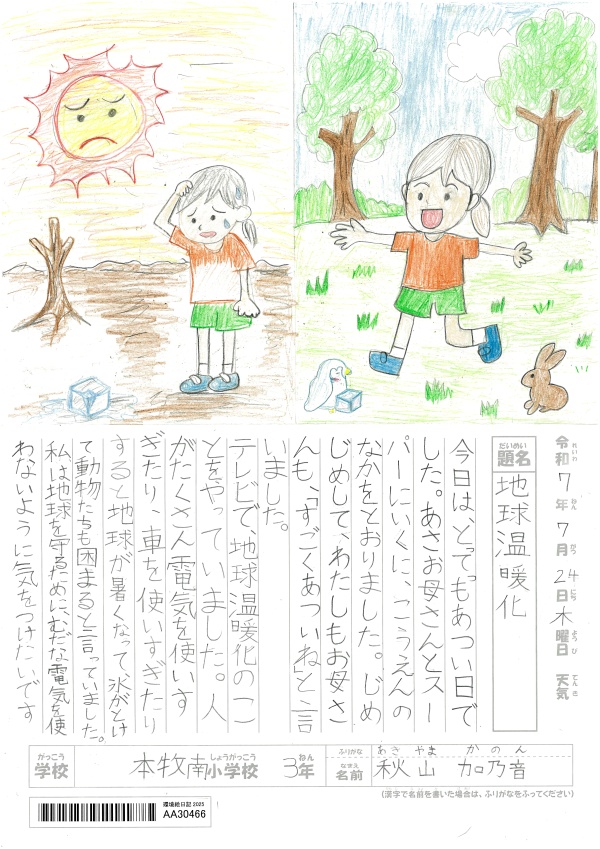 令和7年7月24日木曜日 天気
れいわ ねん がつ にち ようび てんき
だいめい
題名
地球温暖化
今日は、とってもあつい日で
した。あさお母さんとスー
パーにいくに、こうえんの
なかをとおりました。じめ
じめして、わたしもお母さ
んも、「すごくあついね」と言
いました。
テレビで、地球温暖化のこ
とをやっていました。人
がたくさん電気を使いす
ぎたり、車を使いすぎたり
すると地球が暑くなって、氷がとけ
て動物たちも困まると言っていました。
私は地球を守るために、むだな電気を使
わないように気をつけたいです
がっこう
学校
本牧南小学校
しょうがっこう
3年
ねん
ふりがな
あき やま か の ん
なまえ
名前
秋山 加乃音
(漢字で名前を書いた場合は、ふりがなをふってください)
環境絵日記 2025
AA30466